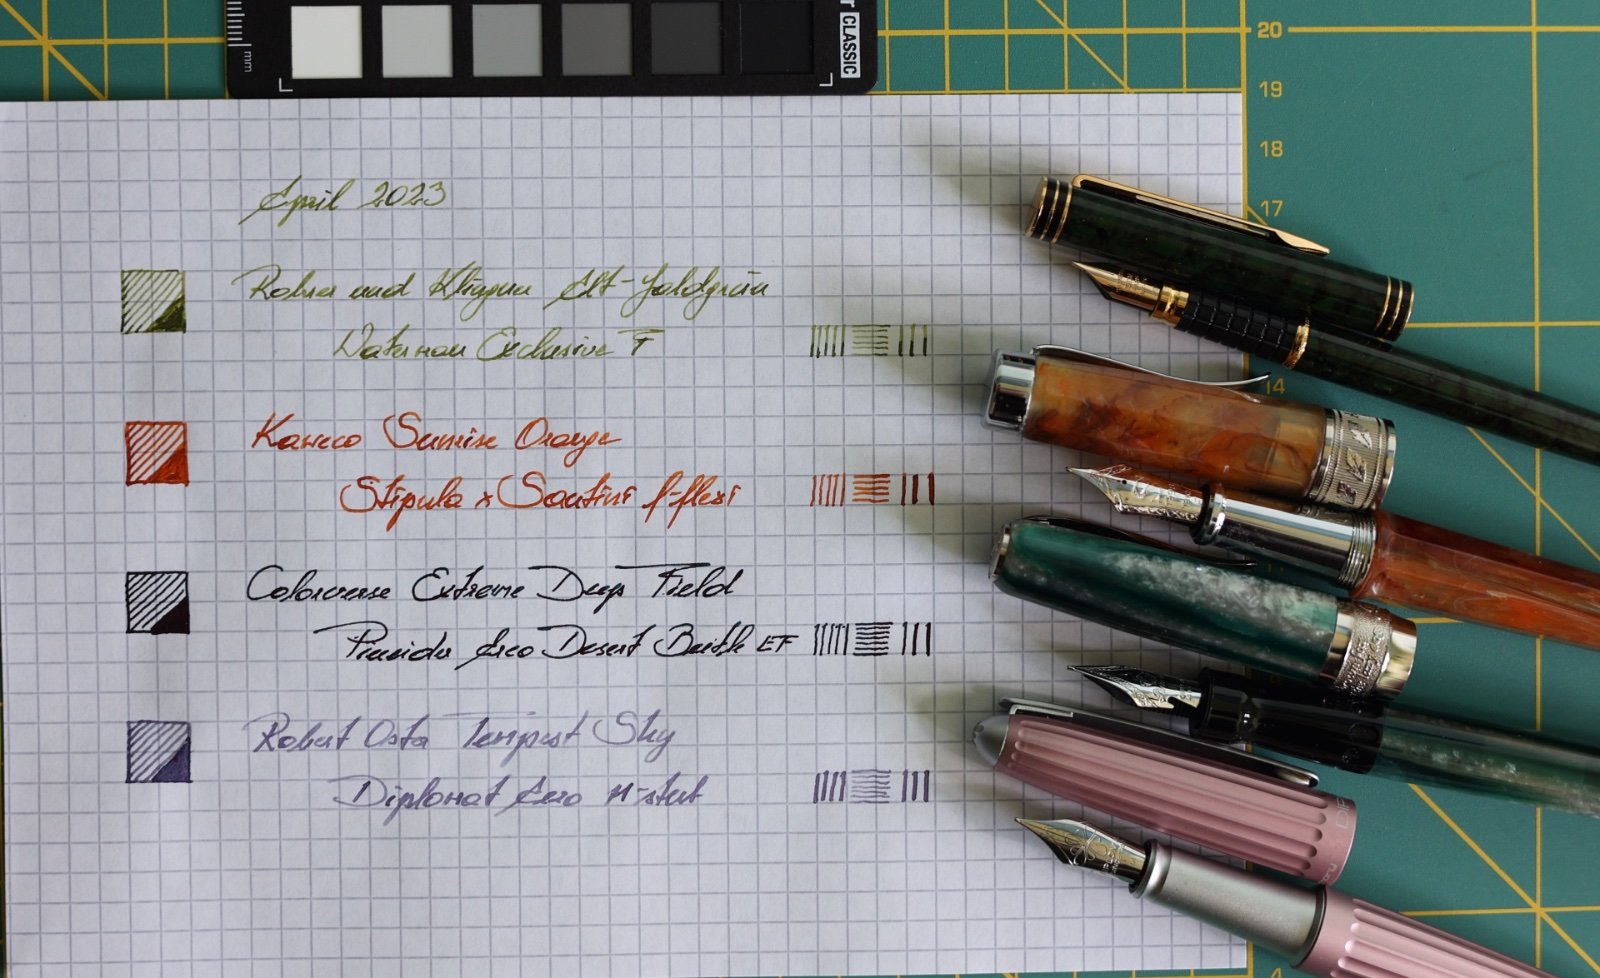 CLASSIC
mm
20
19
18
17
14
April 2023
Rohrer und Klingner Alt-Goldgrün
Waterman Exclusive F
Kaweco Sunrise Orange
Stipula x Scutini f-flexi
Colorverse Extreme Deep Field
Pineider Arco Desert Beetle EF
Robert Oster Tempest Sky
Diplomat Aero M-stub
DIP
4